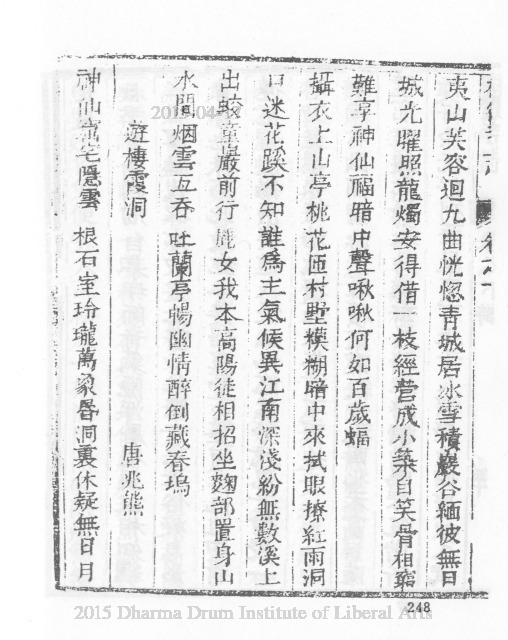 夷山芙容迴九曲恍惚青城居冰雪積巖谷緬彼無日
城光曜照龍燭安得借一枝經營成小築自笑骨相窮
難享神仙福暗中聲啾啾何如百歲蝠
攝衣上山亭桃花匝村墅模糊暗中來拭眼撩紅雨洞
口迷花蹊不知誰為主氣候異江南深淺紛無數溪上
出蛟童巖前行鹿女我本高陽徒相招坐麴部置身山
水間烟雲互吞吐蘭亭暢幽情醉倒藏春塢
遊棲霞洞 唐兆熊
神仙窟宅隱雲根石室玲瓏萬象昏洞裏休疑無日月
248
2015 Dharma Drum Institute of Liberal Arts